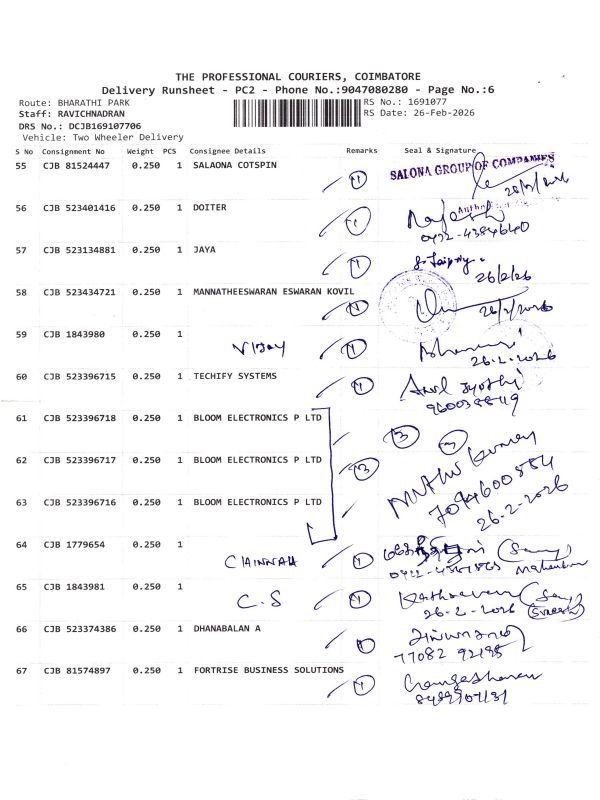 THE PROFESSIONAL COURIERS, COIMBATORE
Delivery Runsheet - PC2 - Phone No.:9047080280 - Page No.:6
Route: BHARATHI PARK
RS No.: 1691077
Staff: RAVICHNADRAN
RS Date: 26-Feb-2026
DRS No.: DCJB169107706
Vehicle: Two Wheeler Delivery
S No Consignment No Weight PCS Consignee Details Remarks Seal & Signature
55 CJB 81524447 0.250 1 SALAONA COTSPIN 1 SALONA GROUP OF COMPANIES
56 CJB 523401416 0.250 1 DOITER 1 Rajesh
0422-4384640
57 CJB 523134881 0.250 1 JAYA 1
26/2/26
58 CJB 523434721 0.250 1 MANNATHEESWARAN ESWARAN KOVIL
26/2/2026
59 CJB 1843980 0.250 1 VIJAY 1
26.2.2026
60 CJB 523396715 0.250 1 TECHIFY SYSTEMS 1 Jyothi
61 CJB 523396718 0.250 1 BLOOM ELECTRONICS P LTD 3
62 CJB 523396717 0.250 1 BLOOM ELECTRONICS P LTD 3
63 CJB 523396716 0.250 1 BLOOM ELECTRONICS P LTD
26-2-2026
64 CJB 1779654 0.250 1 CHINNAH 1
65 CJB 1843981 0.250 1 C.S 1
26-2-2026
66 CJB 523374386 0.250 1 DHANABALAN A 1
77082 92185
67 CJB 81574897 0.250 1 FORTRISE BUSINESS SOLUTIONS 1